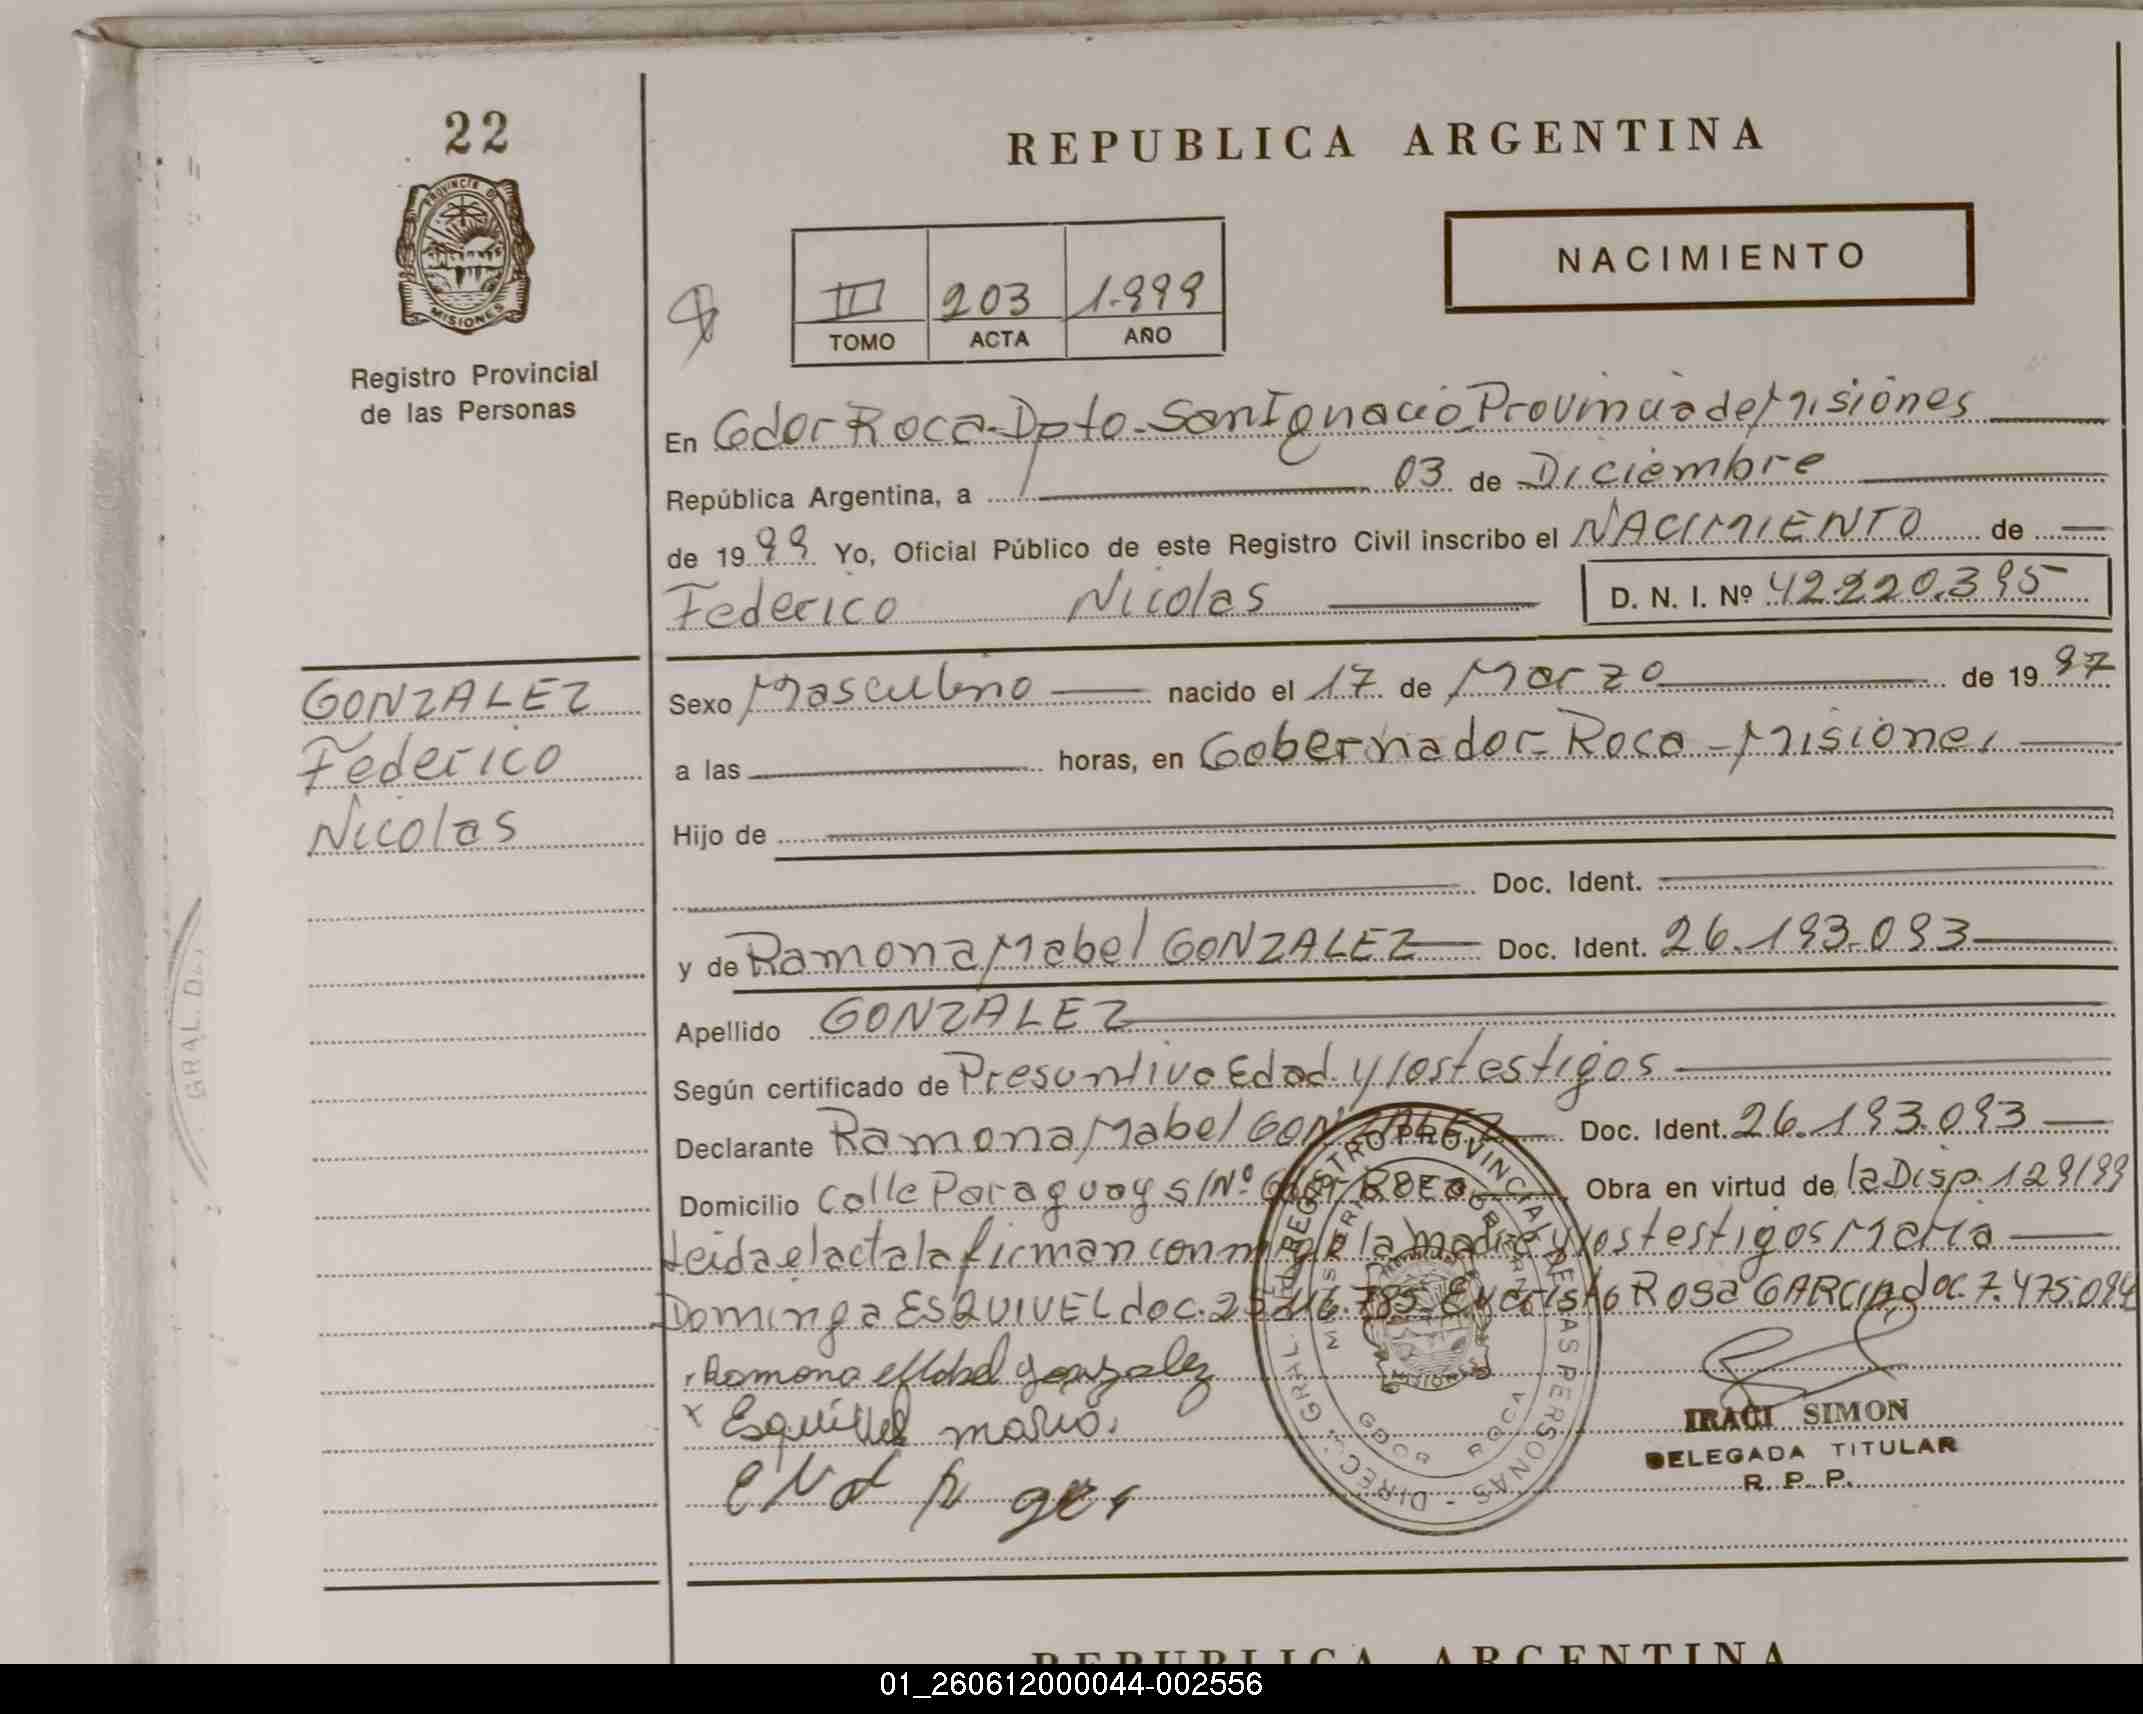 22
REPUBLICA ARGENTINA
PROVINCIA DE
MISIONES
Registro Provincial
de las Personas
NACIMIENTO
III 203 1.999
TOMO ACTA AÑO
En Gdor Roca-Dpto-San Ignacio Provincia de Misiones
República Argentina, a 03 de Diciembre
de 1999 Yo, Oficial Público de este Registro Civil inscribo el NACIMIENTO de
Federico Nicolas D. N. I. Nº 42.220.395
GONZALEZ
Federico
Nicolas
Sexo Masculino nacido el 17 de Marzo de 1997
a las horas, en Gobernador-Roca-Misiones
Hijo de
Doc. Ident.
y de Ramona Mabel GONZALEZ Doc. Ident. 26.193.093
Apellido GONZALEZ
Según certificado de Presuntiva Edad y los testigos
Declarante Ramona Mabel GONZALEZ Doc. Ident. 26.193.093
Domicilio Calle Paraguay s/Nº Gdor Roca Obra en virtud de la Disp. 129/99
Leida el acta la firman conmigo la madre y los testigos Maria
Dominga ESQUIVEL doc. Evaristo Rosa GARCIA doc. 7.475.094
Ramona Mabel Gonzalez
x Esquivel maria.
IRACI SIMON
DELEGADA TITULAR
R. P. P.
DIRECC. GRAL. DEL REGISTRO PROVINCIAL DE LAS PERSONAS
GDOR ROCA
MISIONES
GRAL. D
REPUBLICA ARGENTINA
01_260612000044-002556